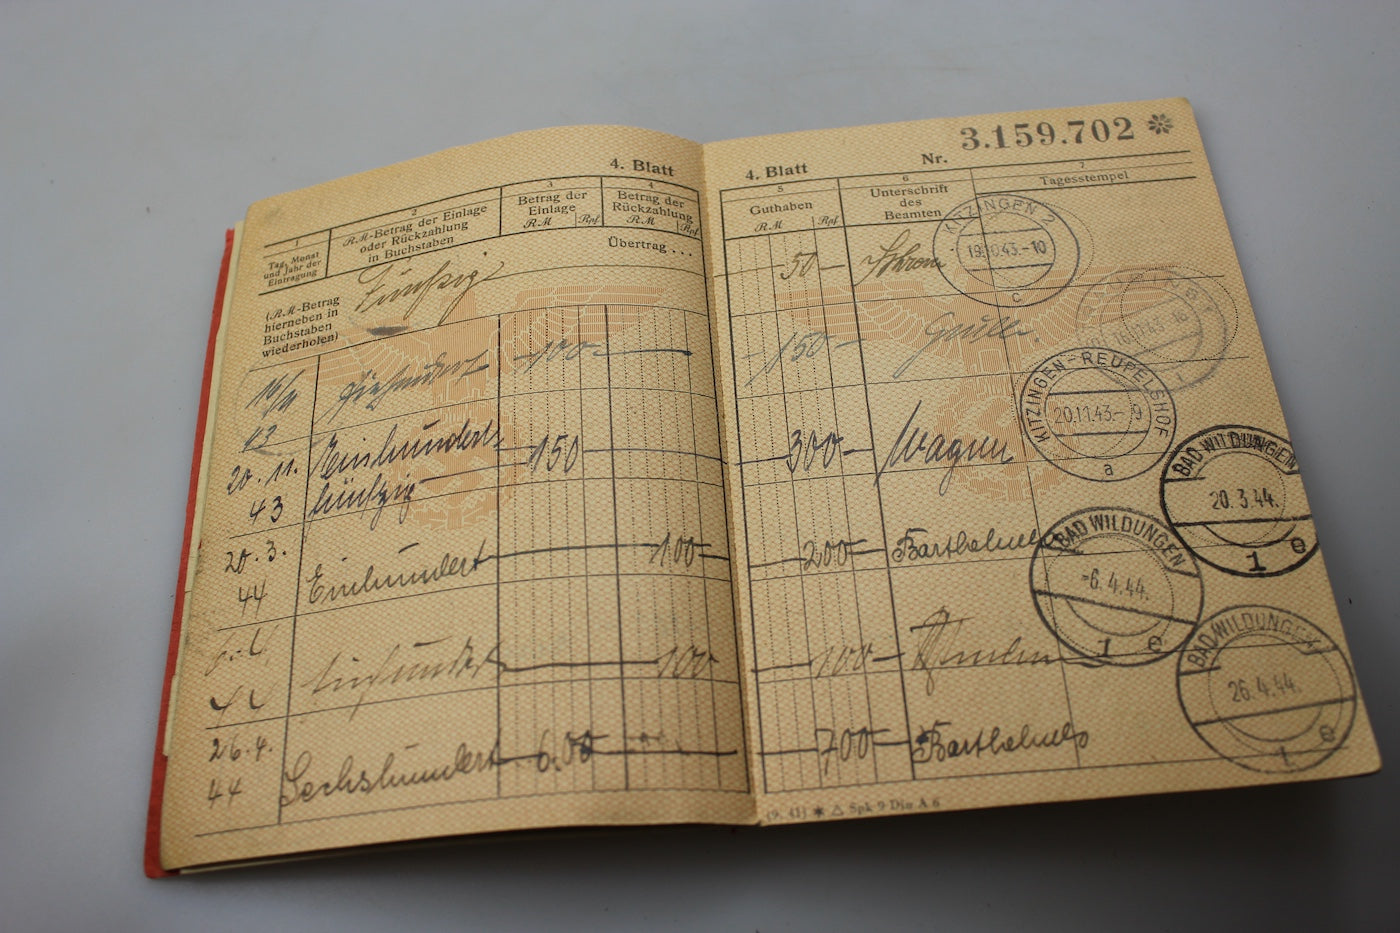 4. Blatt
1
Tag, Monat
und Jahr der
Eintragung
2
RM-Betrag der Einlage
oder Rückzahlung
in Buchstaben
3
Betrag der
Einlage
RM Rpf
4
Betrag der
Rückzahlung
RM Rpf
(RM-Betrag
hierneben in
Buchstaben
wiederholen)
Fünfzig
Übertrag . . .
43 100
20. 11. Einhundert- 150
43 fünfzig
20. 3.
44 Einhundert 100
44 100
26. 4.
44 Sechshundert 600
4. Blatt
Nr. 3.159.702
5
Guthaben
RM Rpf
6
Unterschrift
des
Beamten
7
Tagesstempel
50
KITZINGEN 2
19.10.43.-10
c
150
300 Wagen
KITZINGEN-REUPELSHOF
20.11.43.- 9
a
200
BAD WILDUNGEN
20. 3. 44.
1 e
100
BAD WILDUNGEN
-6. 4. 44.
1 e
700
BAD WILDUNGEN
26. 4. 44.
1 e
(9. 41) Spk 9 Din A 6